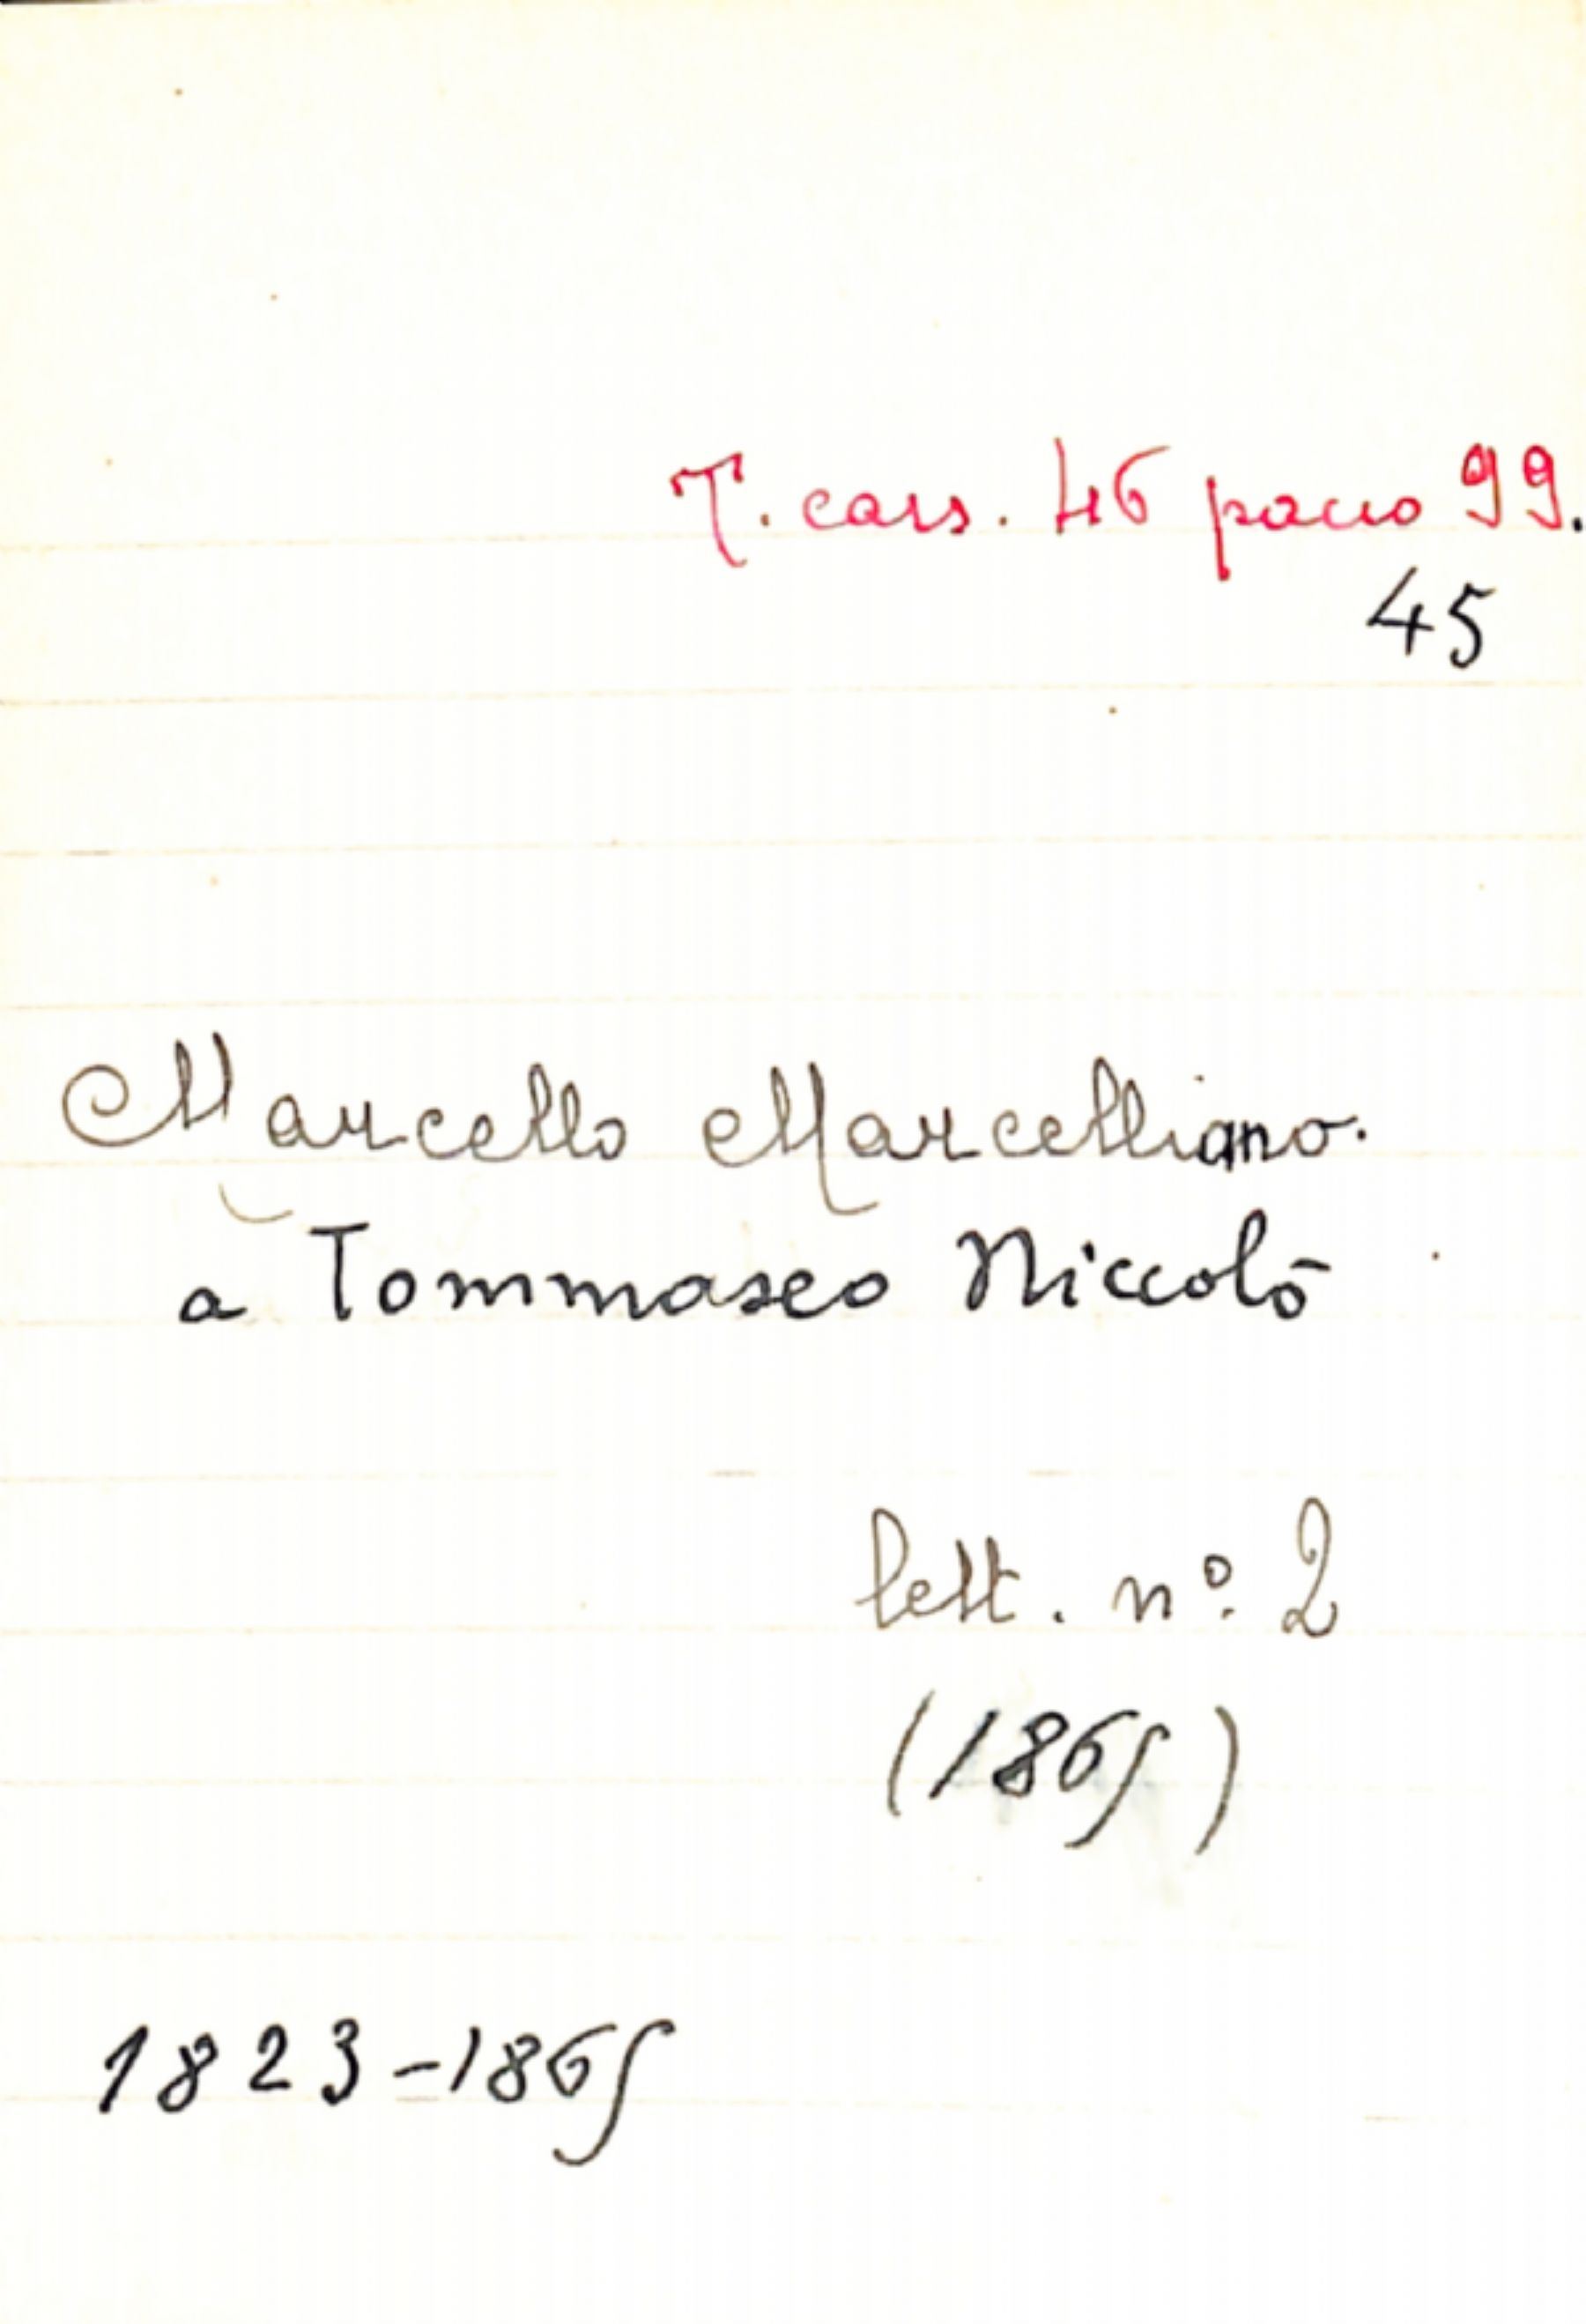 T. cass. 46 pacco 99.
45
Marcello Marcelliano.
a Tommaseo Niccolò
lett. nº. 2
(1865)
1823-1865